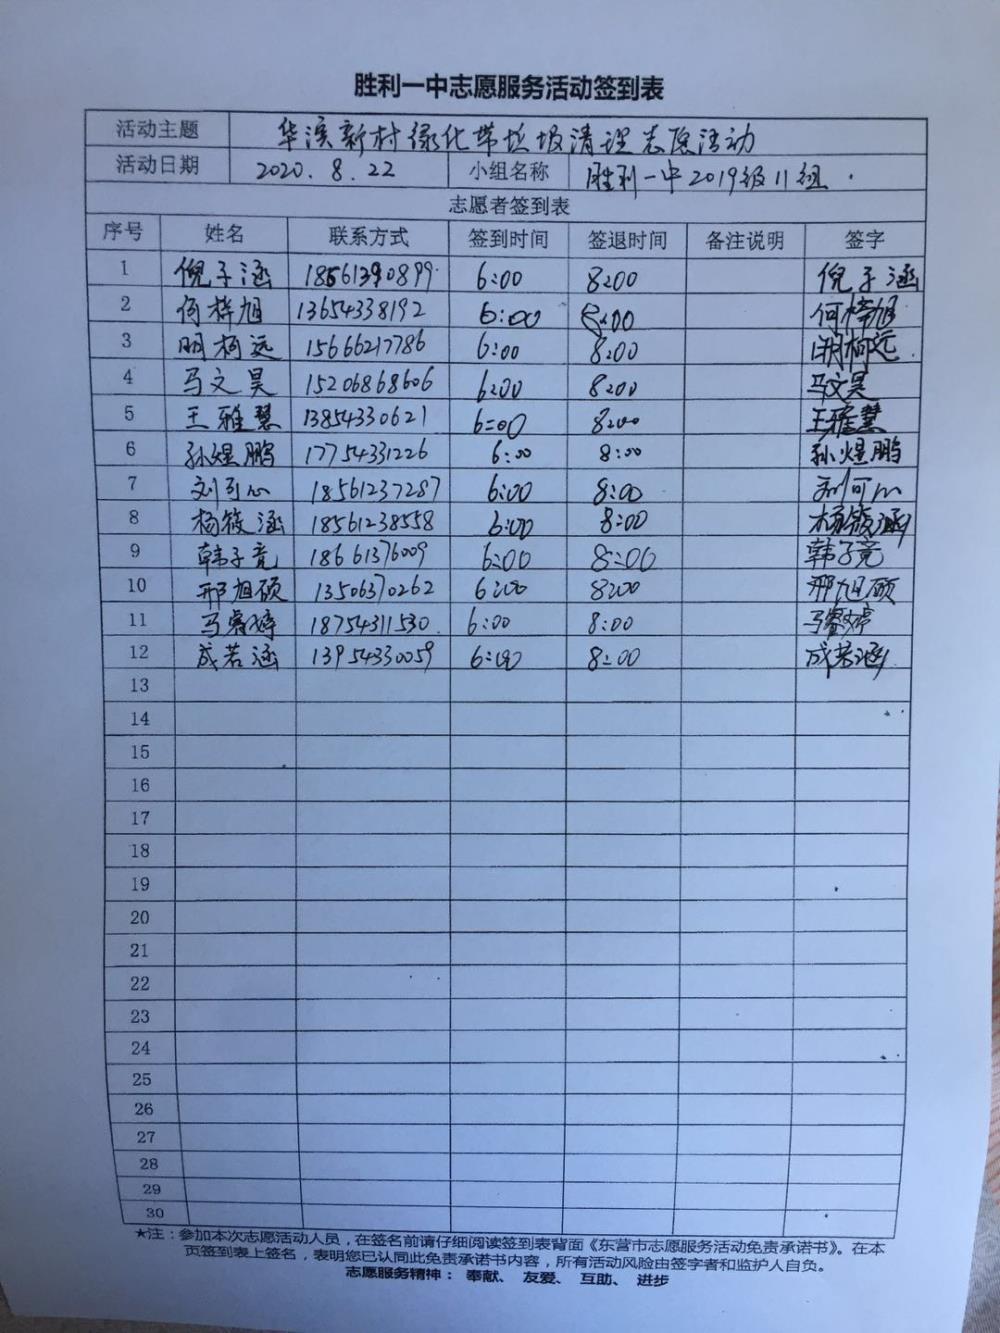 胜利一中志愿服务活动签到表
活动主题 华滨新村绿化带垃圾清理志愿活动
活动日期 2020.8.22 小组名称 胜利一中2019级11组.
志愿者签到表
序号 姓名 联系方式 签到时间 签退时间 备注说明 签字
1 倪子涵 18561390899 6:00 8:00 倪子涵
2 何梓旭 13654338192 6:00 8:00 何梓旭
3 明柯远 15666217786 6:00 8:00 明柯远
4 马文昊 15206868606 6:00 8:00 马文昊
5 王雅慧 13854330621 6:00 8:00 王雅慧
6 孙煜鹏 17754331226 6:00 8:00 孙煜鹏
7 刘可心 18561237287 6:00 8:00 刘可心
8 杨筱涵 18561238558 6:00 8:00 杨筱涵
9 韩子竞 18661376009 6:00 8:00 韩子竞
10 邢旭硕 13506370262 6:00 8:00 邢旭硕
11 马睿婷 18754311530 6:00 8:00 马睿婷
12 成若涵 13954330059 6:00 8:00 成若涵
13
14
15
16
17
18
19
20
21
22
23
24
25
26
27
28
29
30
★注：参加本次志愿活动人员，在签名前请仔细阅读签到表背面《东营市志愿服务活动免责承诺书》。在本
页签到表上签名，表明您已认同此免责承诺书内容，所有活动风险由签字者和监护人自负。
志愿服务精神： 奉献、 友爱、 互助、 进步